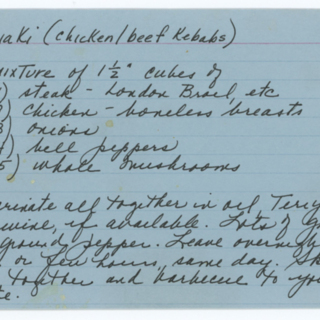 aki (chicken/beef Kebabs)
mixture of 1½" cubes of
1) steak - London Broil, etc
2) chicken - boneless breasts
3) onions
4) bell peppers
5) whole mushrooms
rinate all together in oil, Tery
wine, if available. Lots of
ground pepper. Leave overnig
or few hours, same day. Sk
together and barbecue to yo
te.